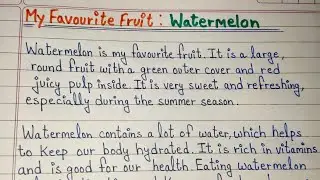 My Favourite Fruit : Watermelon
Watermelon is my favourite fruit. It is a large,
round fruit with a green outer cover and red
juicy pulp inside. It is very sweet and refreshing,
especially during the summer season.
Watermelon contains a lot of water, which helps
to keep our body hydrated. It is rich in vitamins
and is good for our health. Eating watermelon